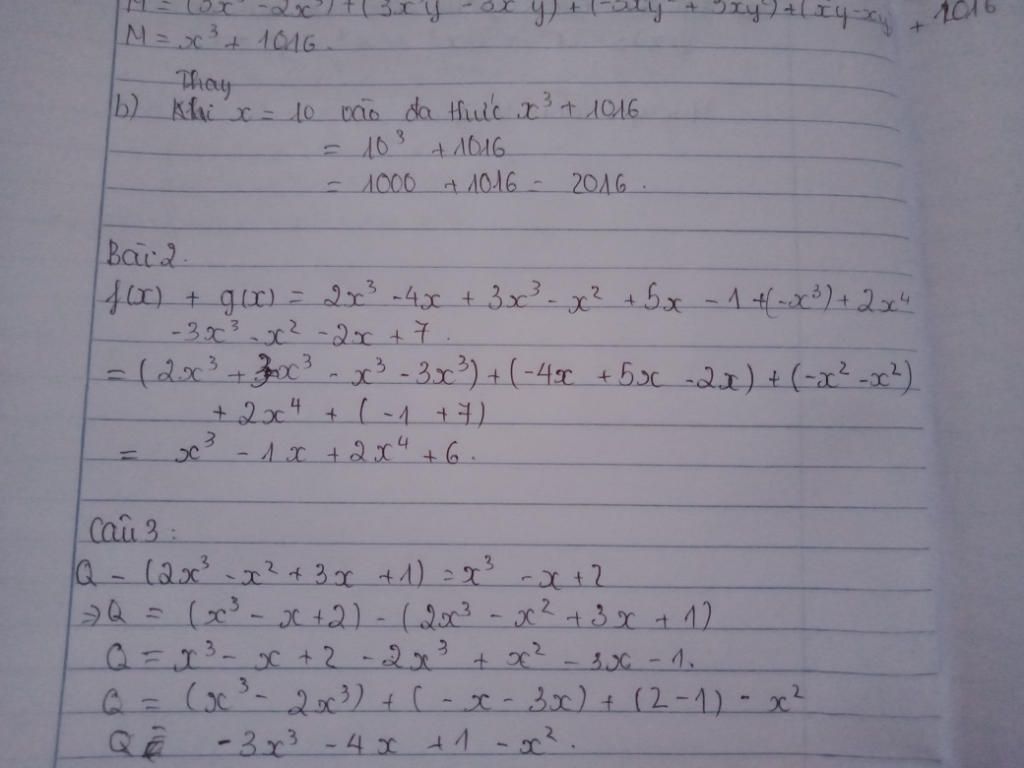 M = (3x³ - 2x³) + (3x²y - 3x²y) + (-3xy² + 3xy²) + (xy-xy) + 1016
M = x³ + 1016.
Thay
b) Khi x = 10 vào đa thức x³ + 1016
= 10³ + 1016
= 1000 + 1016 = 2016.
Bài 2.
f(x) + g(x) = 2x³ - 4x + 3x³ - x² + 5x - 1 + (-x³) + 2x⁴
- 3x³ - x² - 2x + 7.
= (2x³ + 3x³ - x³ - 3x³) + (-4x + 5x - 2x) + (-x² - x²)
+ 2x⁴ + (-1 + 7)
= x³ - 1x + 2x⁴ + 6.
Câu 3:
Q - (2x³ - x² + 3x + 1) = x³ - x + 2
⇒ Q = (x³ - x + 2) - (2x³ - x² + 3x + 1)
Q = x³ - x + 2 - 2x³ + x² - 3x - 1.
Q = (x³ - 2x³) + (-x - 3x) + (2 - 1) - x²
Q = -3x³ - 4x + 1 - x².